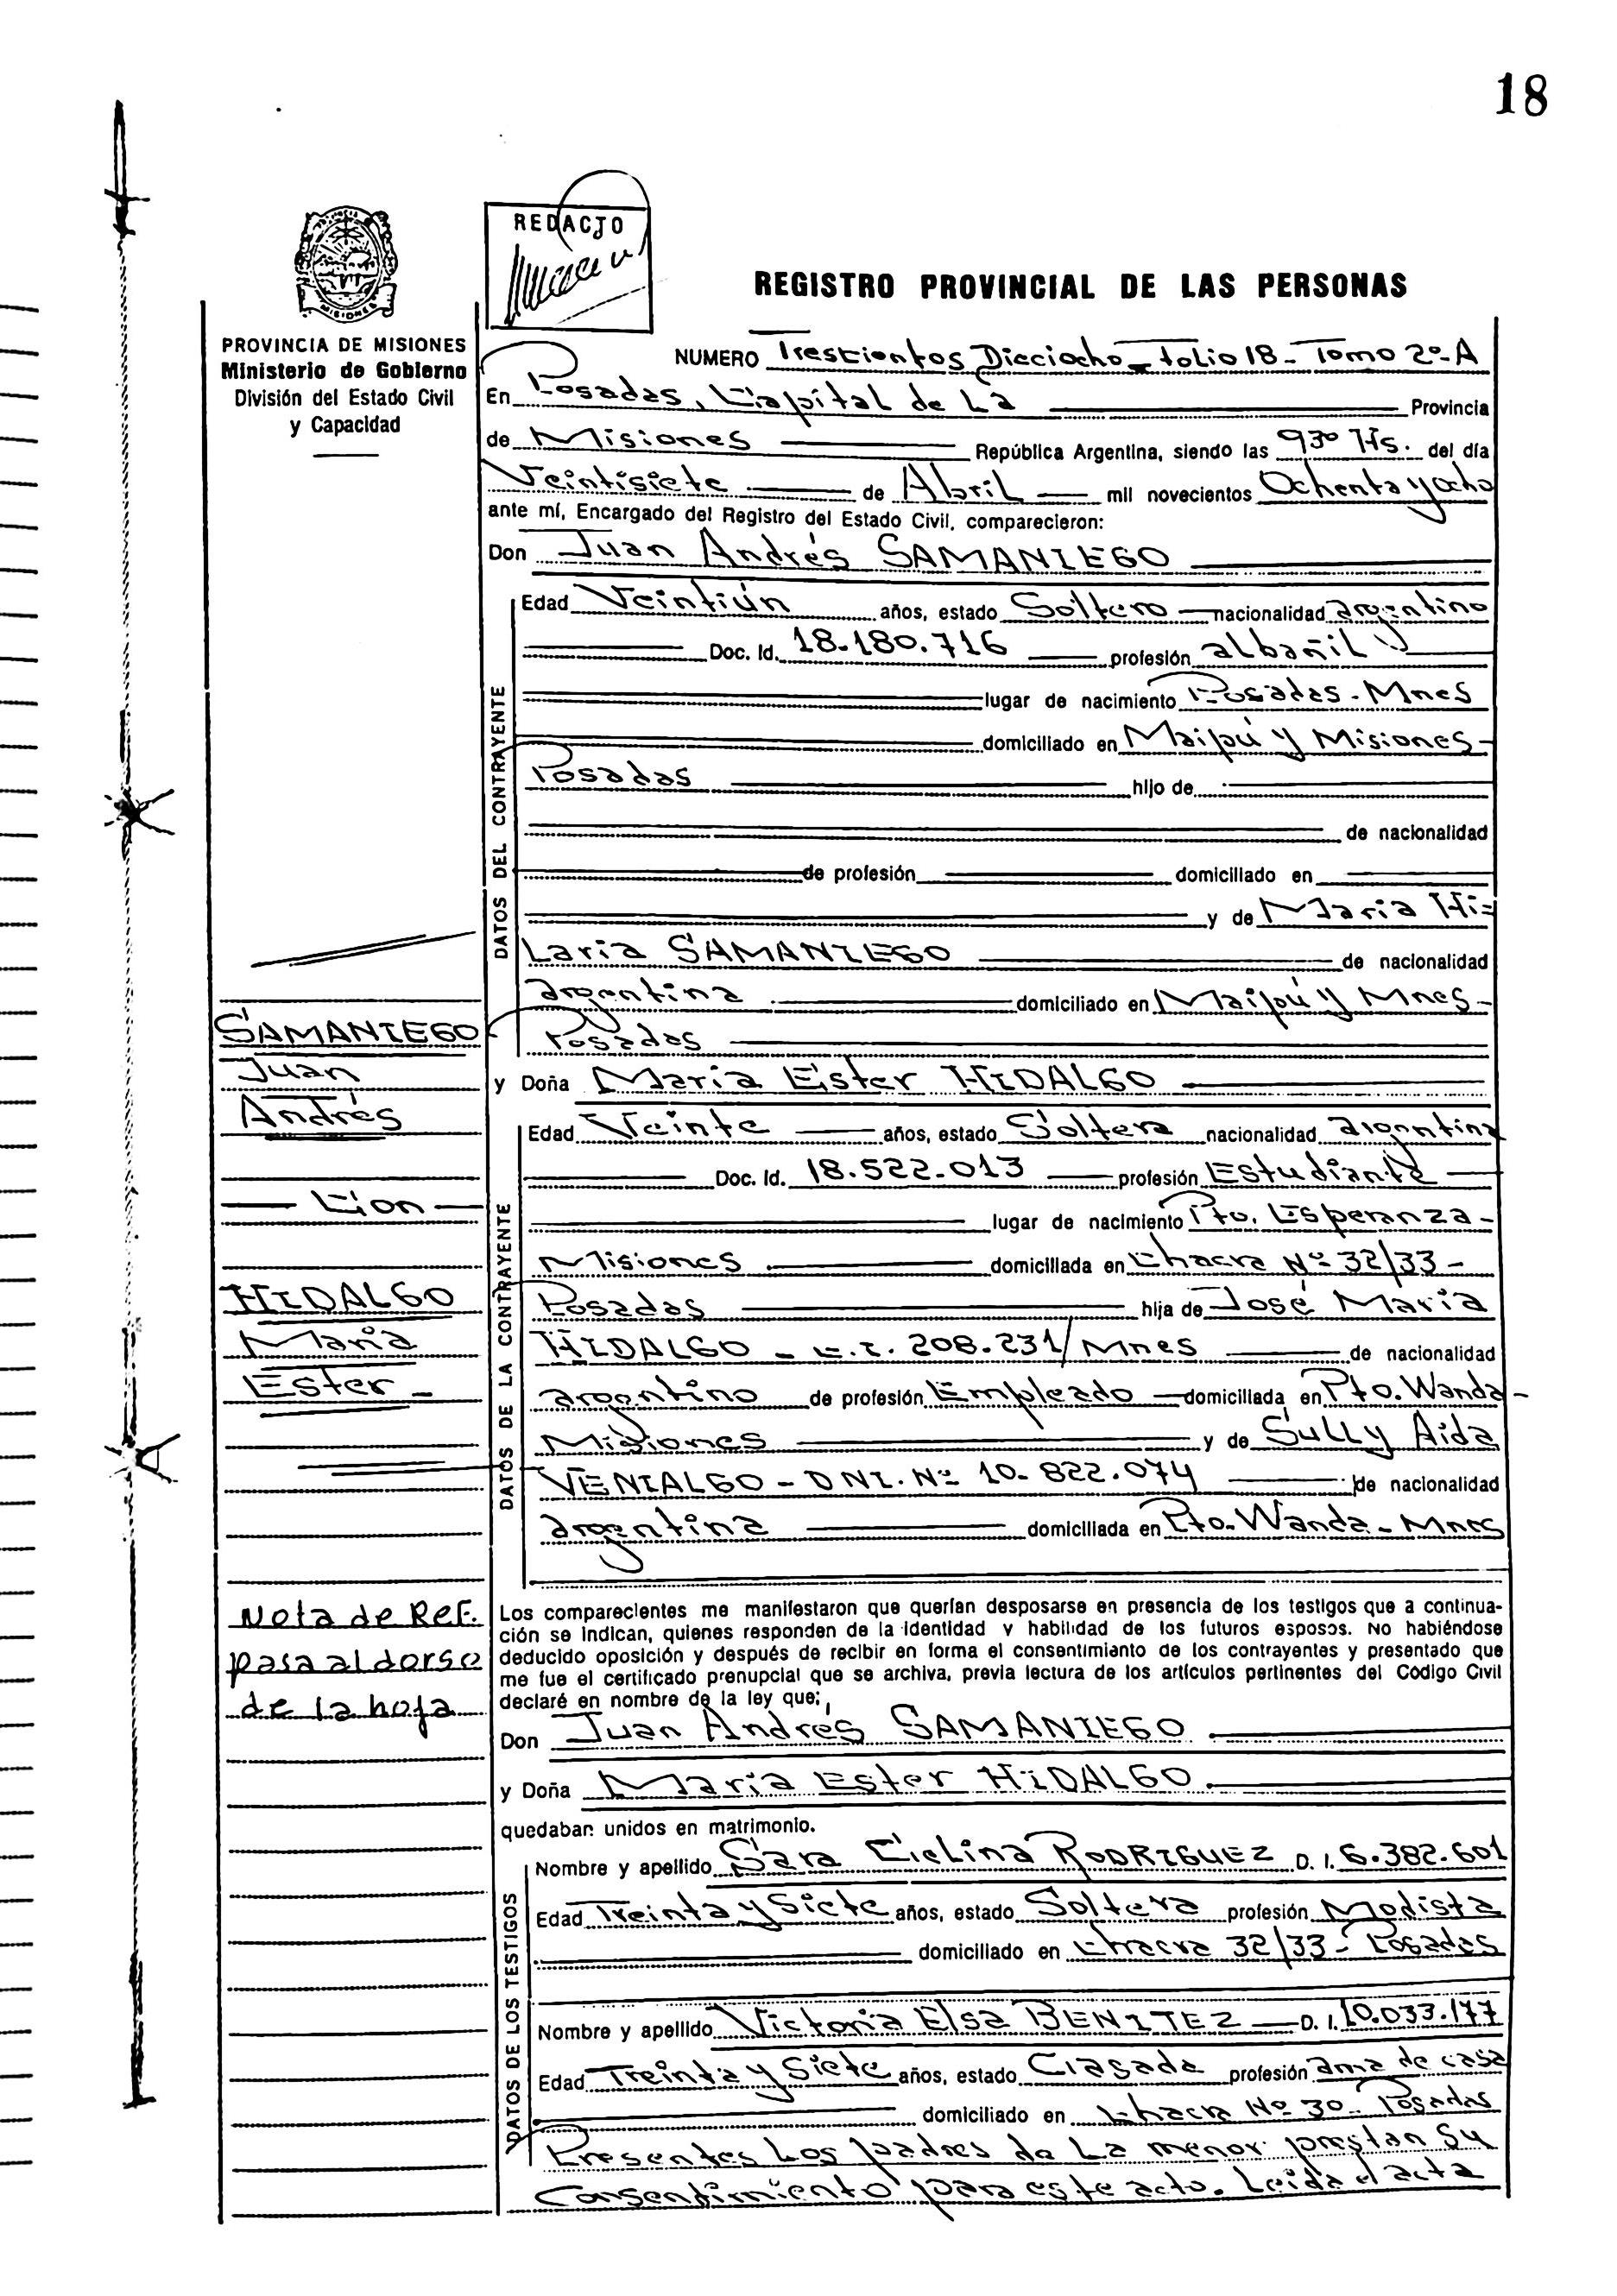 18
REDACTO
REGISTRO PROVINCIAL DE LAS PERSONAS
MISIONES
PROVINCIA DE MISIONES
Ministerio de Gobierno
División del Estado Civil
y Capacidad
NUMERO Trescientos Dieciocho - Folio 18 - Tomo 2º - A
En Posadas, Capital de La Provincia
de Misiones República Argentina, siendo las 9³⁰ Hs. del día
Veintisiete de Abril mil novecientos Ochenta y ocho
ante mí, Encargado del Registro del Estado Civil, comparecieron:
Don Juan Andrés SAMANIEGO
DATOS DEL CONTRAYENTE
Edad Veintiún años, estado Soltero nacionalidad argentino
Doc. Id. 18.180.716 profesión albañil
lugar de nacimiento Posadas - Mnes
domiciliado en Maipú y Misiones -
Posadas hijo de
de nacionalidad
de profesión domiciliado en
y de Maria Hi=
Laria SAMANIEGO de nacionalidad
argentina domiciliado en Maipú y Mnes -
Posadas
y Doña Maria Ester HIDALGO
DATOS DE LA CONTRAYENTE
Edad Veinte años, estado Soltera nacionalidad argentina
Doc. Id. 18.522.013 profesión Estudiante
lugar de nacimiento Pto. Esperanza -
Misiones domiciliada en Chacra Nº 32/33 -
Posadas hija de José Maria
HIDALGO - C.I. 208.231/Mnes de nacionalidad
argentino de profesión Empleado domiciliada en Pto. Wanda -
Misiones y de Sully Aida
VENIALGO - DNI. Nº 10.822.074 de nacionalidad
argentina domiciliada en Pto. Wanda - Mnes
SAMANIEGO
Juan
Andrés
- Con -
HIDALGO
Maria
Ester -
Nota de Ref.
pasa al dorso
de la hoja
Los comparecientes me manifestaron que querían desposarse en presencia de los testigos que a continua-
ción se indican, quienes responden de la identidad y habilidad de los futuros esposos. No habiéndose
deducido oposición y después de recibir en forma el consentimiento de los contrayentes y presentado que
me fue el certificado prenupcial que se archiva, previa lectura de los artículos pertinentes del Código Civil
declaré en nombre de la ley que:
Don Juan Andrés SAMANIEGO
y Doña Maria Ester HIDALGO
quedaban unidos en matrimonio.
DATOS DE LOS TESTIGOS
Nombre y apellido Sara Cielina RODRIGUEZ D. I. 6.382.601
Edad Treinta y Siete años, estado Soltera profesión Modista
domiciliado en Chacra 32/33 - Posadas
Nombre y apellido Victoria Elsa BENITEZ D. I. 10.033.177
Edad Treinta y Siete años, estado Casada profesión ama de casa
domiciliado en Chacra Nº 30 - Posadas
Presentes Los padres de La menor prestan Su
Consentimiento para este acto. Leida el acta